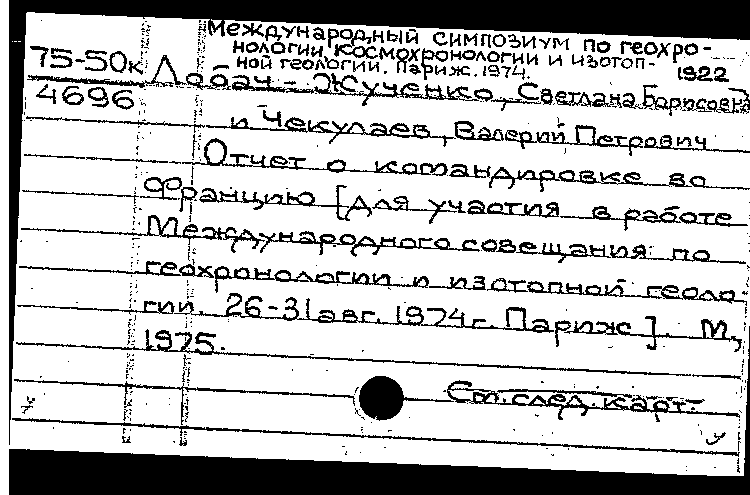 Международный симпозиум по геохро-
нологии, космохронологии и изотоп-
ной геологии. Париж. 1974. 1922
75-50к Лобач-Жученко, Светлана Борисовна
4696
и Чекулаев, Валерий Петрович
Отчет о командировке во
Францию [для участия в работе
Международного совещания по
геохронологии и изотопной геоло-
гии. 26-31 авг. 1974 г. Париж]. М.,
1975.
См. след. карт.